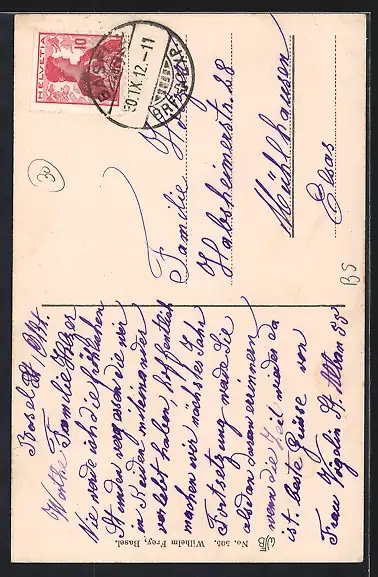 HELVETIA
10
BASEL
30.IX.12.-11
BRIEFAUFG.
30
Familie
Habsheimerstr. 28
Mühlhausen
Elsas
BS
Basel
Werthe Familie
Nie werde ich die fröhlichen
Stunden vergessen die wir
in Baden miteinander
verlebt haben, hoffentlich
machen wir nächstes Jahr
Fortsetzung werde Sie
alsdann daran erinnern
wenn die Zeit wieder da
ist. beste Grüsse von
Frau Vögelin St. Alban
No. 505. Wilhelm Frey, Basel.